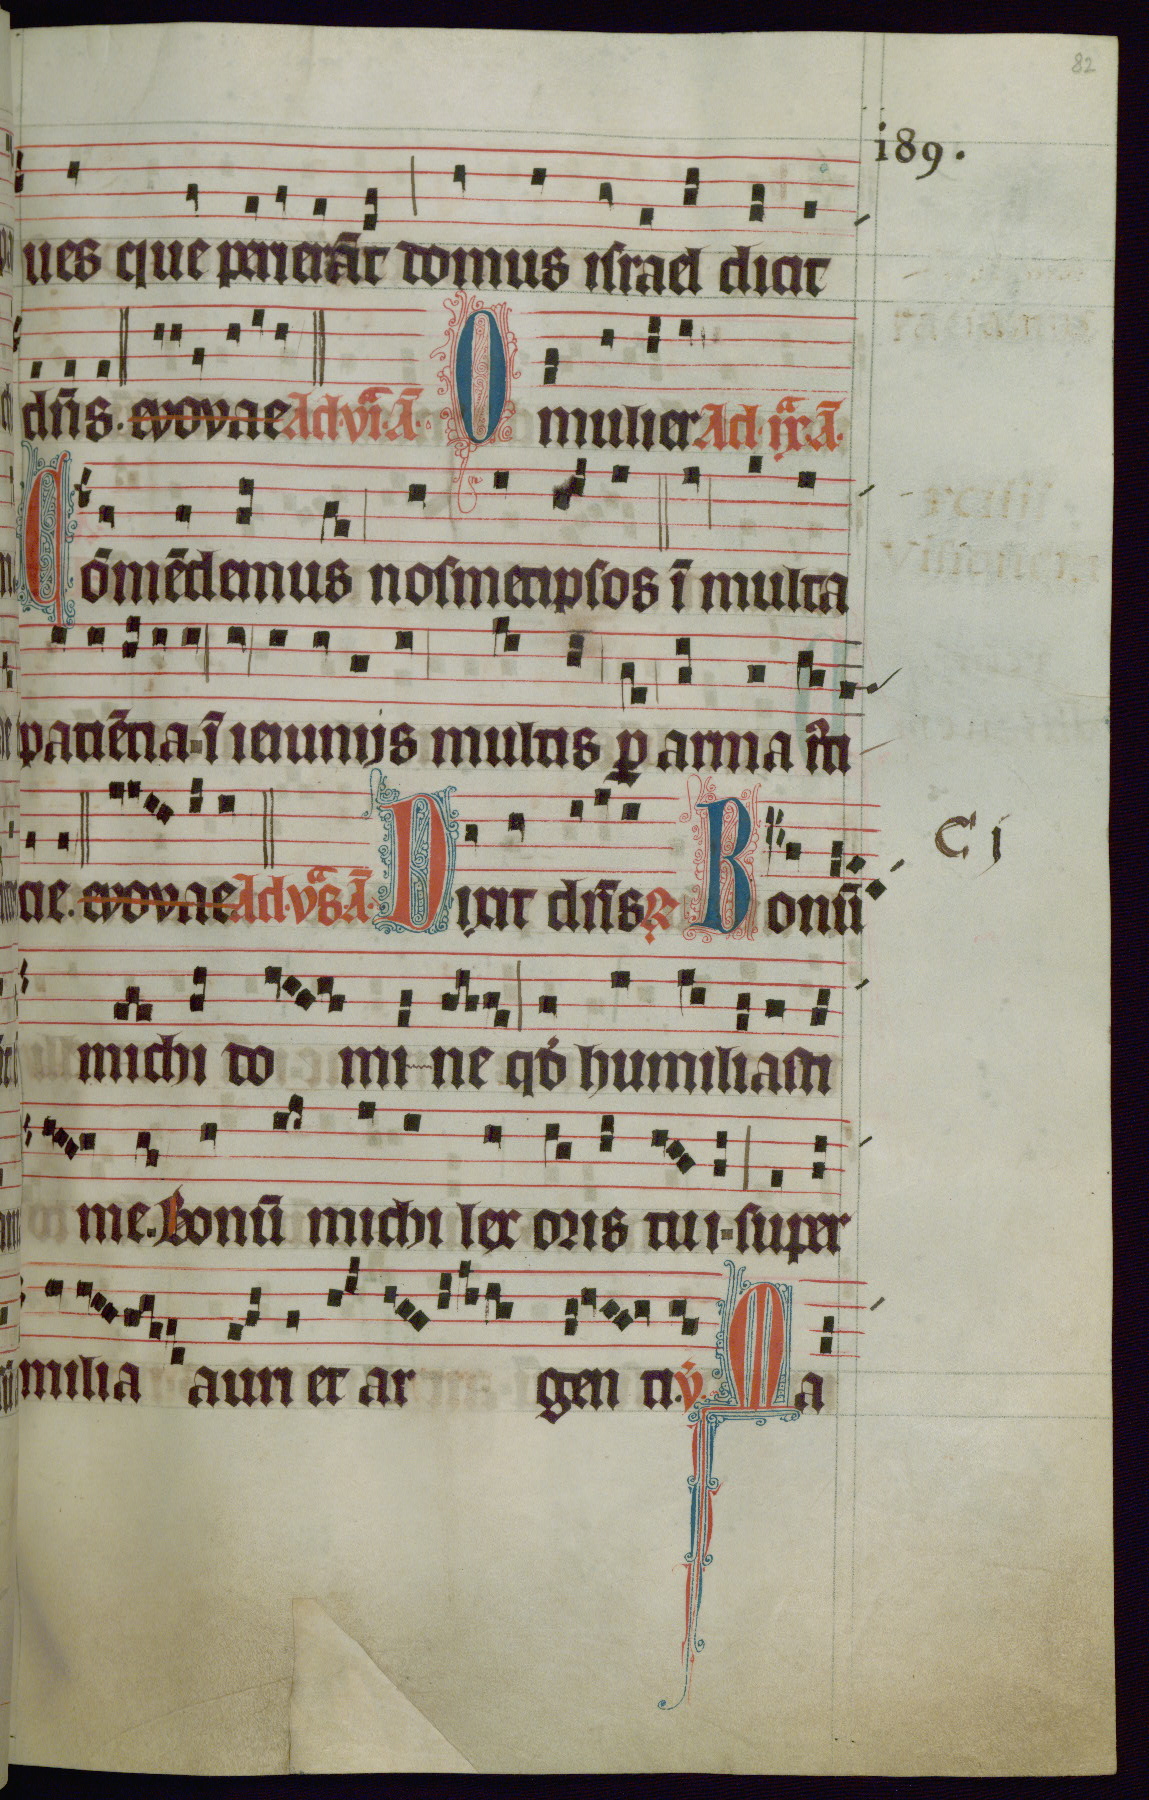 82
i89.
ues que perierāt domus israel dicit
dn̄s. evovae Ad·vi·a·A· O mulier Ad·ix·a·A·
Cōmēdemus nosmetipsos ī multa
patiētia-ī ieiunijs multis ꝑ arma iusti
cie. evovae Ad·v̄s·A· Dixit dn̄s ℟ Bonū
C j
michi do mi ne qd̄ humiliasti
me. Bonū michi lex oris tui-super
milia auri et ar gen ti. v̄. Ma